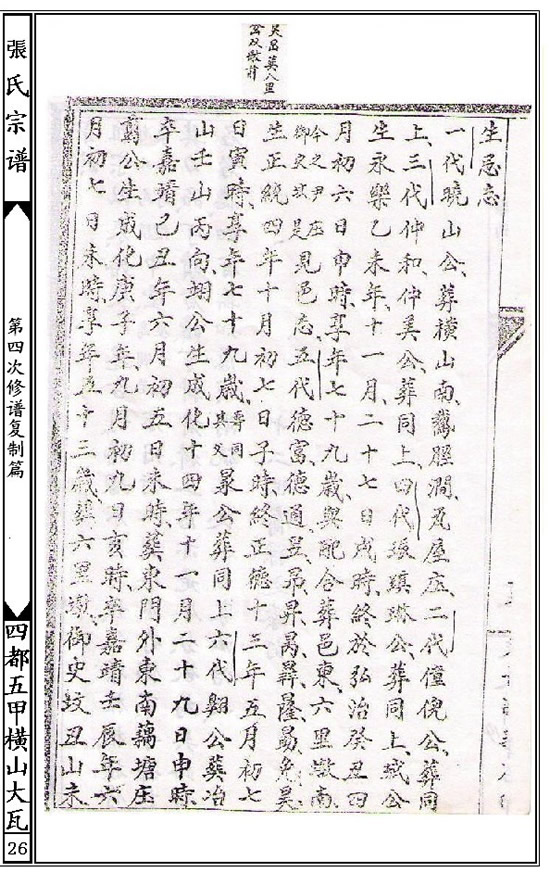 張氏宗谱
第四次修谱复制篇
四都五甲横山大瓦
26
葬八里
生忌志
一代曉山公葬横山南鷰脛澗瓦屋庄二代僮倪公葬同
上三代仲和仲美公葬同上四代瑗璵琳公葬同上珹公
生永樂乙未年十一月二十七日戌時終於弘治癸丑四
月初六日申時享年七十九歲與配合葬邑東六里墩南
今之尹庄御史坟是見邑志五代德富德通昱昂昇昺隆昊
生正統四年十月初七日子時終正德十三年五月初七
日寅時享年七十九歲其父公葬同上六代翱公葬冶
山壬山丙向翃公生成化十四年十一月二十九日申時
卒嘉靖己丑年六月初五日未時葬東門外東南藕塘庄
翥公生成化庚子年九月初九日亥時卒嘉靖壬辰年六
月初七日未時享年五十三歲葬六里墩御史坟丑山未